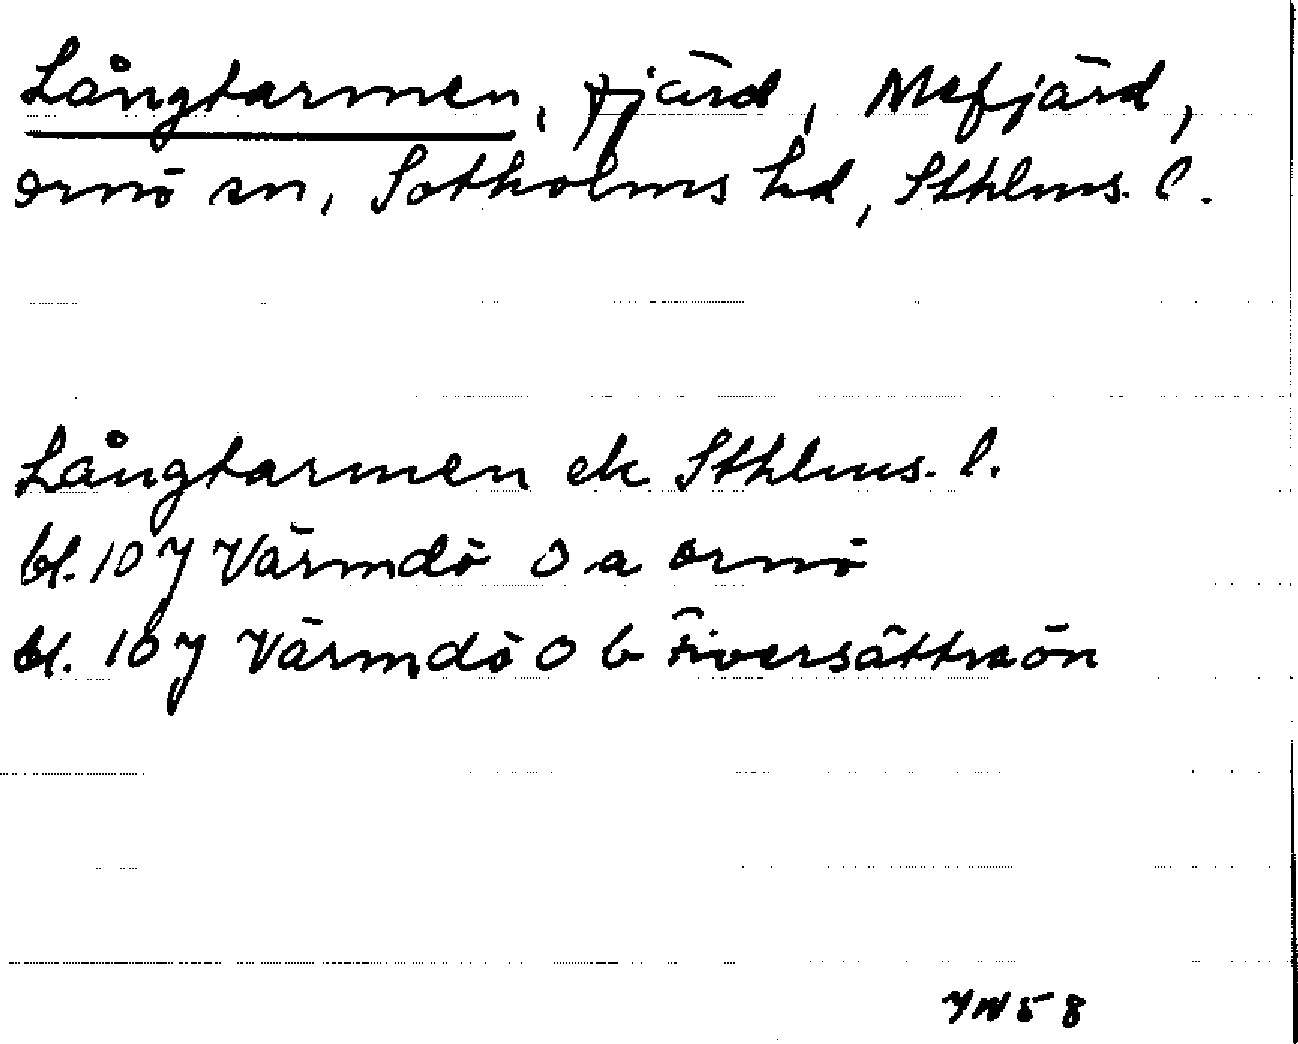 Långtarmen, fjärd, Msfjärd,
Ornö sn, Sotholms hd, Sthlms. l.
Långtarmen ek Sthlms. l.
bl. 10 J Värmdö O a Ornö
bl. 10 J Värmdö O b Fiversättraön
YN 58